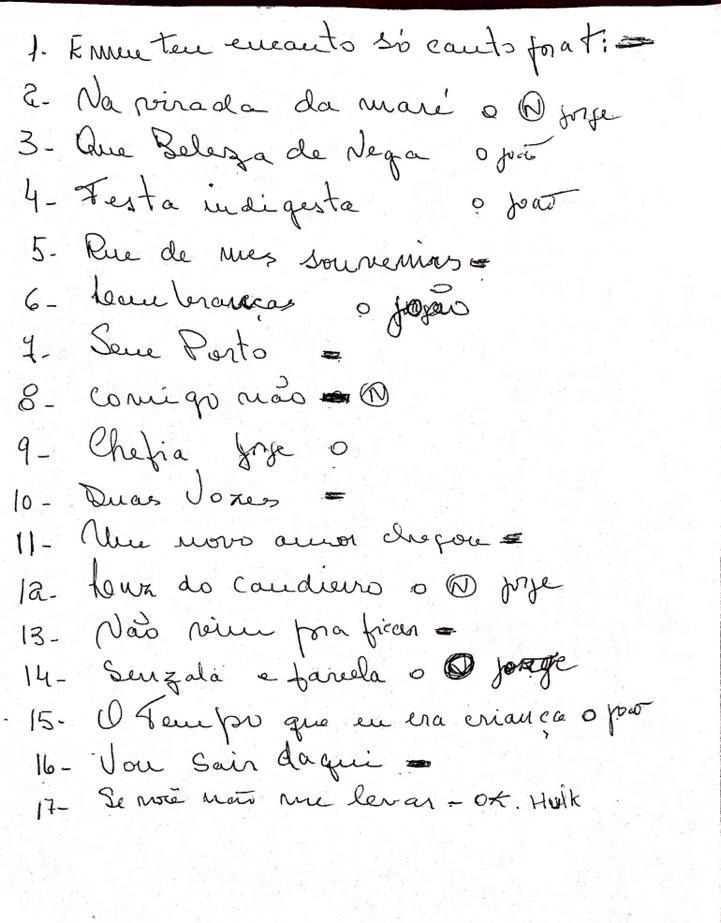 1. Em meu teu encanto só canto pra ti =
2- Na virada da maré o Ⓝ Jorge
3- Que Beleza de Nega o João
4- Festa indigesta o João
5. Rue de mes souvenirs =
6- Lembranças o João
7- Sem Porto =
8- Comigo não = Ⓝ
9- Chefia Jorge o
10- Duas Vozes =
11- Um novo amor chegou =
12- Luz do candieiro o Ⓝ Jorge
13- Não vim pra ficar =
14- Senzala e favela o Ⓝ Jorge
15- O Tempo que eu era criança o João
16- Vou sair daqui =
17- Se você não me levar - OK. Hulk